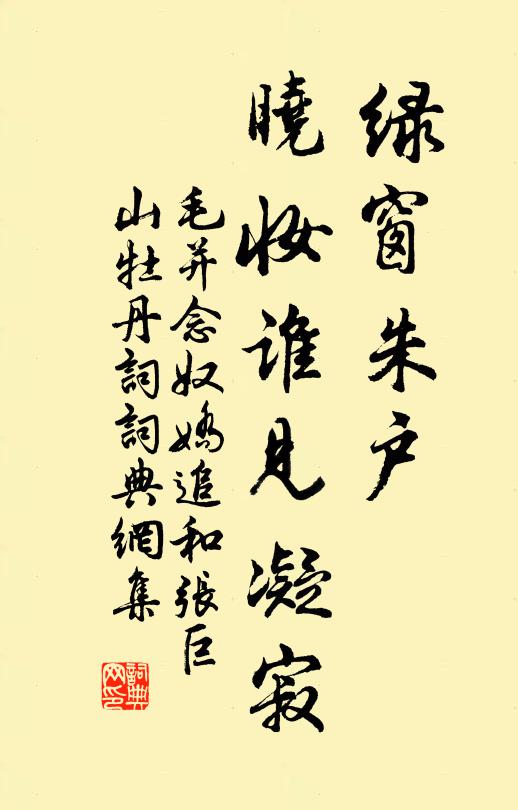 绿窗朱户
曉妆谁見凝寂
毛并念奴嬌追和張巨
山牡丹詞詞典網集
詞典
网印